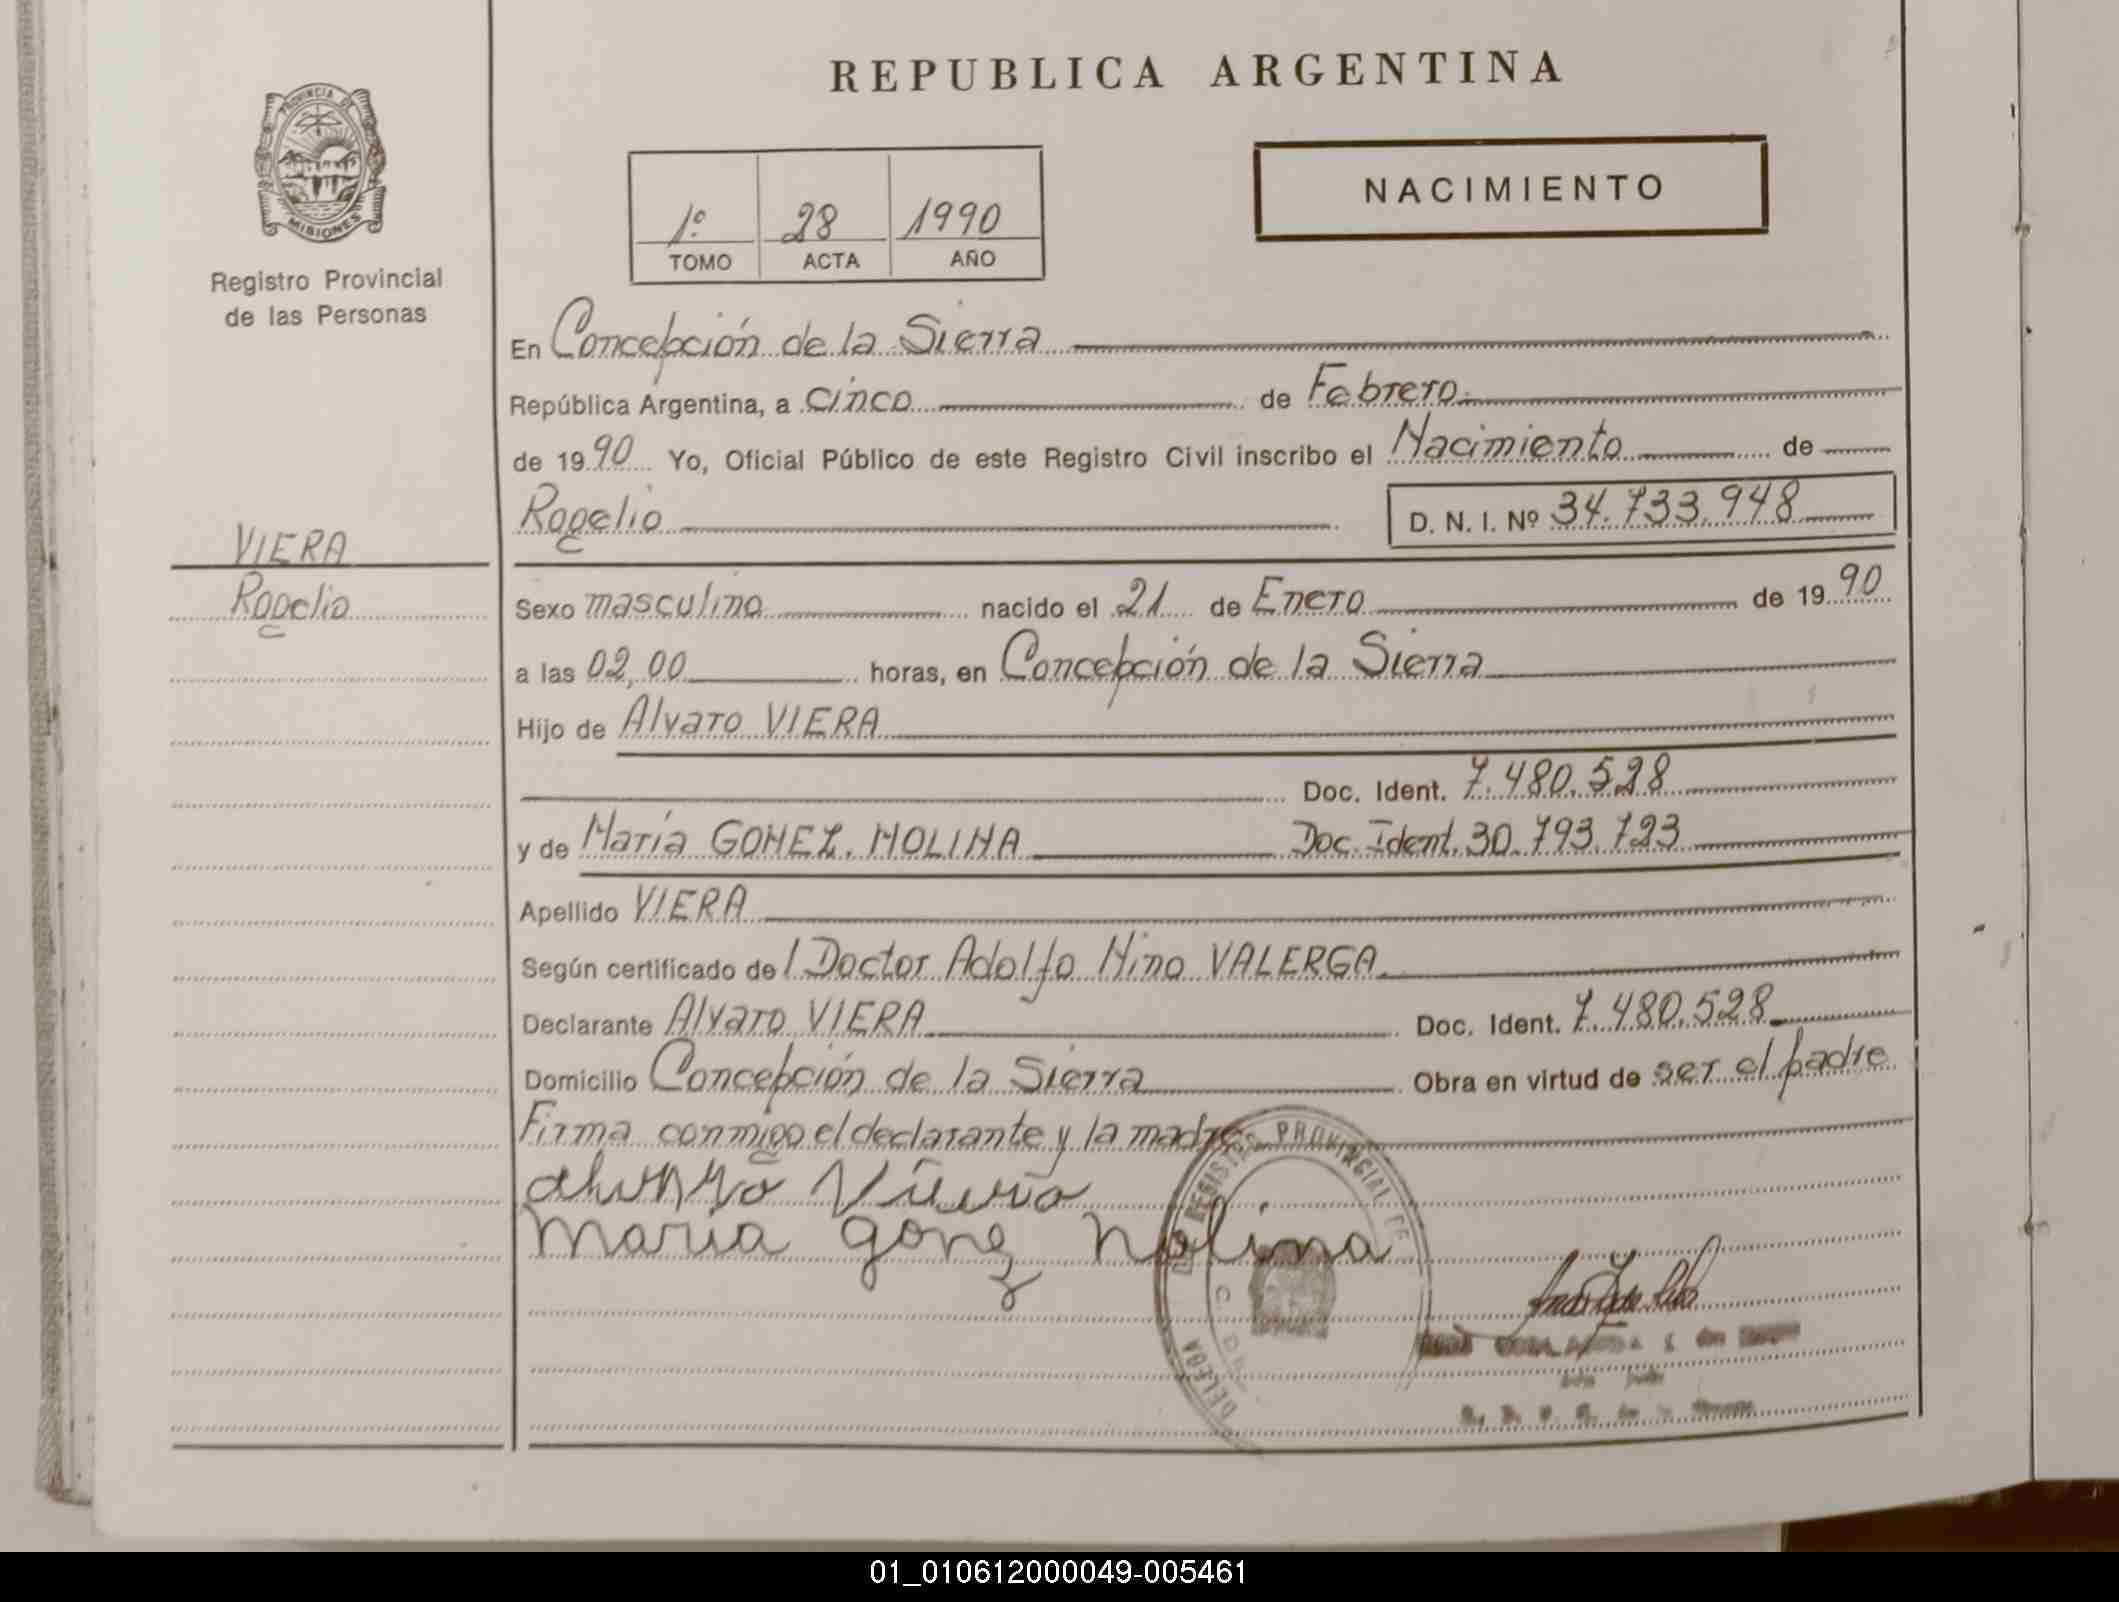 REPUBLICA ARGENTINA
PROVINCIA DE
MISIONES
Registro Provincial
de las Personas
1º 28 1990
TOMO ACTA AÑO
NACIMIENTO
En Concepción de la Sierra
República Argentina, a cinco de Febrero
de 1990 Yo, Oficial Público de este Registro Civil inscribo el Nacimiento de
Rogelio D. N. I. Nº 34.733.948
VIERA
Rogelio
Sexo masculino nacido el 21 de Enero de 1990
a las 02,00 horas, en Concepción de la Sierra
Hijo de Alvaro VIERA
Doc. Ident. 7.480.528
y de María GOMEZ MOLINA Doc. Ident. 30.793.723
Apellido VIERA
Según certificado del Doctor Adolfo Nino VALERGA
Declarante Alvaro VIERA Doc. Ident. 7.480.528
Domicilio Concepción de la Sierra Obra en virtud de ser el padre
Firma conmigo el declarante y la madre
Viera
maria gomz molina
REGISTRO PROVINCIAL DE
DELEGA
01_010612000049-005461